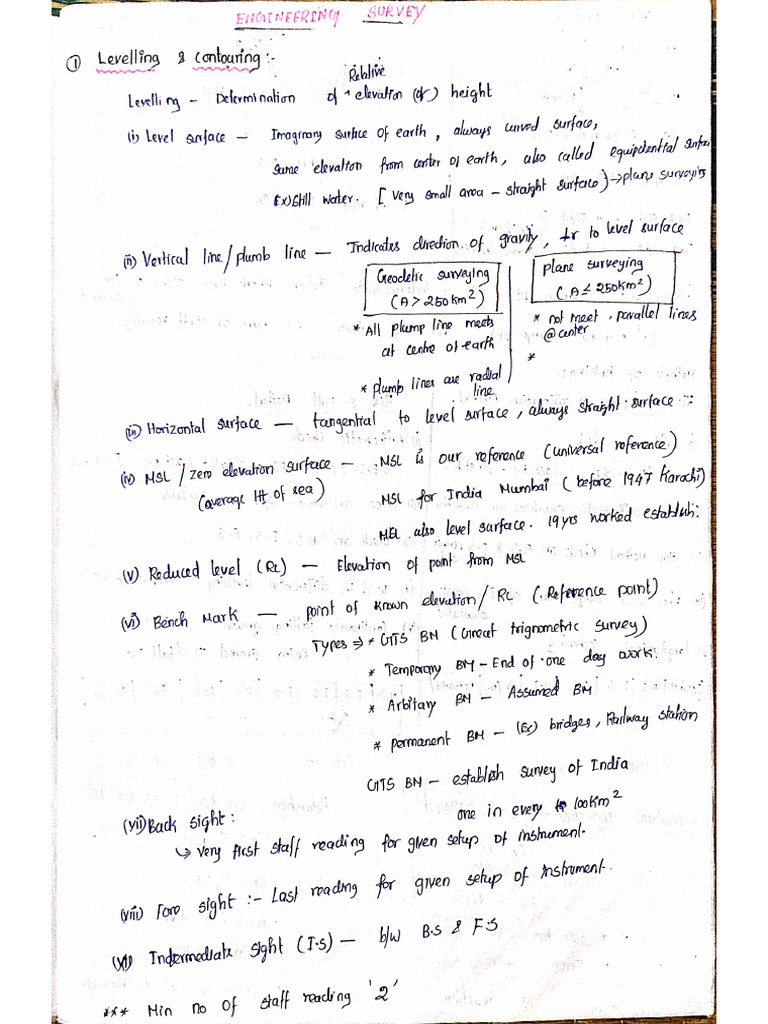 ENGINEERING SURVEY
① Levelling & Contouring :-
Levelling - Determination of ^ Relative elevation (or) height
(i) Level surface - Imaginary surface of earth, always curved surface,
same elevation from center of earth, also called equipotential surface
(Ex) Still water. [Very small area - straight surface) → plane surveying
(ii) Vertical line / plumb line - Indicates direction of gravity, ⊥r to level surface
Geodetic surveying
(A > 250 Km²)
* All plump line meets
at centre of earth
* plumb lines are radial
line
Plane surveying
(A ≤ 250 Km²)
* not meet, parallel lines
@ center
*
(iii) Horizontal surface - tangential to level surface, always straight surface
(iv) MSL / Zero elevation surface - MSL is our reference (universal reference)
(average Ht of sea)
MSL for India Mumbai (before 1947 Karachi)
MSL also level surface. 19 yrs worked establish:
(v) Reduced level (RL) - Elevation of point from MSL
(vi) Bench Mark - point of known elevation / RL (Reference point)
Types ⇒ * GTS BM (Great trignometric survey)
* Temporary BM - End of one day work.
* Arbitary BM - Assumed BM
* permanent BM - (Ex) bridges, Railway station
GTS BM - establish survey of India
one in every 100 Km²
(vii) Back sight :
↳ very first staff reading for given setup of instrument.
(viii) Fore sight :- Last reading for given setup of instrument.
Intermediate sight (I.S) - b/w B.S & F.S
*** Min no of staff reading '2'